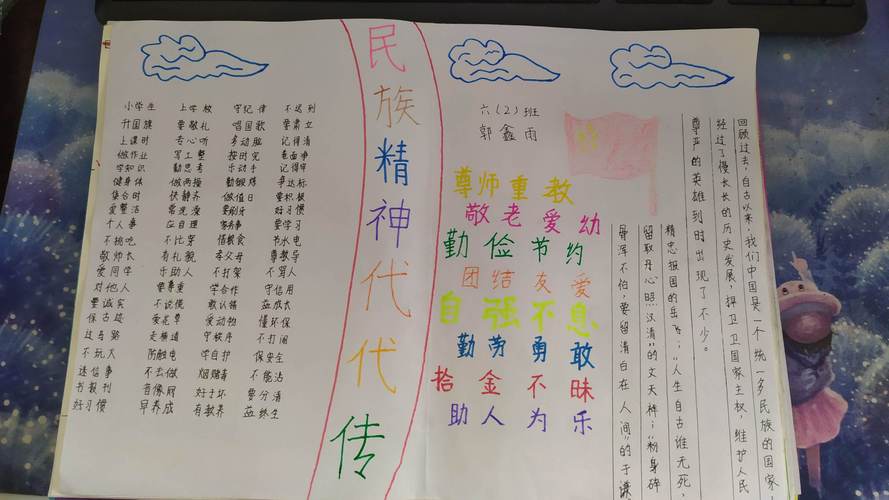 民族精神代代传
小学生 上学校 守纪律 不迟到
升国旗 要敬礼 唱国歌 要肃立
上课时 专心听 多动脑 记得清
做作业 写工整 按时完 卷面净
学知识 勤思考 乐动手 记得牢
健身体 做两操 勤锻炼 争达标
集合时 快静齐 做值日 要积极
爱整洁 常洗澡 要刷牙 好习惯
个人事 应自理 家务事 要学习
不挑吃 不比穿 惜粮食 节水电
敬师长 有礼貌 孝父母 尊教导
爱同学 乐助人 不打架 不骂人
对他人 要尊重 学合作 守信用
要诚实 不说慌 敢认错 益成长
保古迹 爱花草 爱动物 懂环保
过马路 走横道 守秩序 不打闹
不玩火 防触电 学自护 保安全
迷信事 不去做 烟赌毒 不能沾
书报刊 音像厨 好于坏 要分清
好习惯 早养成 有教养 益终生
六(2)班
郭鑫雨
尊师重教
敬老爱幼
勤俭节约
团结友爱
自强不息
勤劳勇敢
拾金不昧
助人为乐
回顾过去,自古以来,我们中国是一个统一多民族的国家
经过了慢长长的历史发展,捍卫卫国家主权,维护人民
尊严的英雄到时出现了不少。
精忠报国的岳飞;“人生自古谁无死,
留取丹心照汉清”的文天祥;“粉身碎
骨浑不怕,要留清白在人间”的于谦